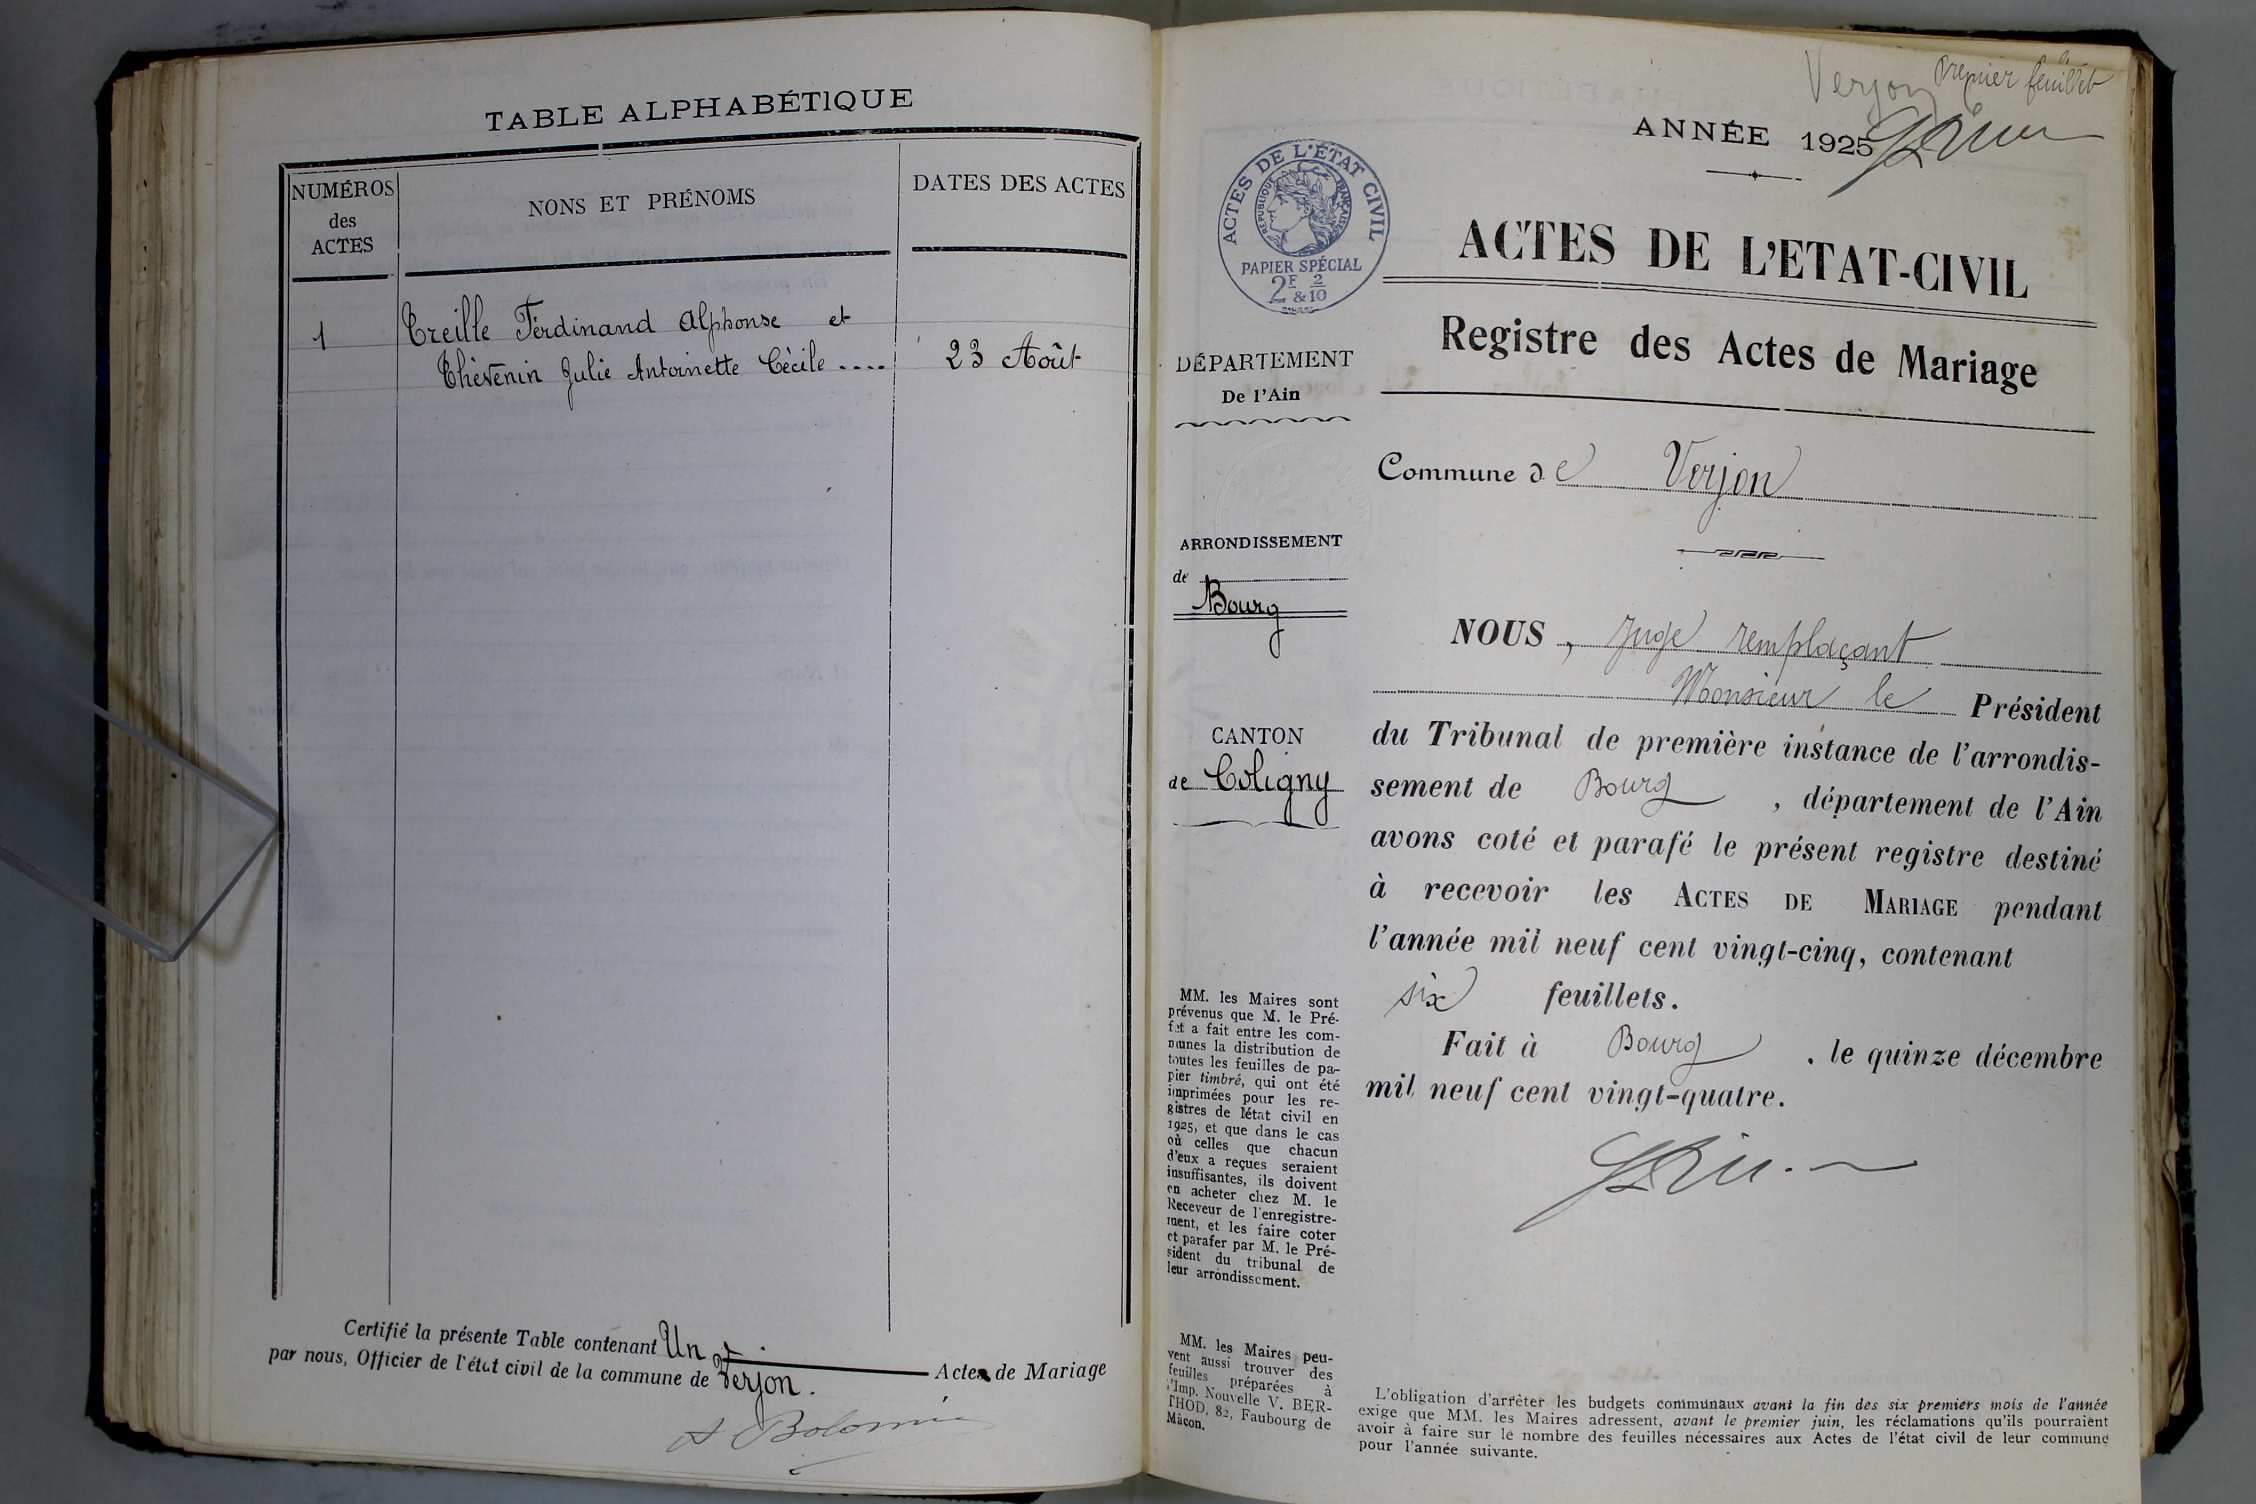 TABLE ALPHABÉTIQUE
NUMÉROS
des
ACTES
NONS ET PRÉNOMS
DATES DES ACTES
1
Treille Ferdinand Alphonse et
Thévenin Julie Antoinette Cécile ....
23 Août
Certifié la présente Table contenant Un Actes de Mariage
par nous, Officier de l'état civil de la commune de Verjon.
Verjon premier feuillet
ANNÉE 1925
ACTES DE L'ÉTAT CIVIL
RÉPUBLIQUE FRANÇAISE
PAPIER SPÉCIAL
2F & 2/10
ACTES DE L'ETAT-CIVIL
Registre des Actes de Mariage
DÉPARTEMENT
De l'Ain
Commune de Verjon
ARRONDISSEMENT
de
Bourg
CANTON
de Coligny
NOUS, Juge remplaçant
Monsieur le Président
du Tribunal de première instance de l'arrondis-
sement de Bourg, département de l'Ain
avons coté et parafé le présent registre destiné
à recevoir les ACTES DE MARIAGE pendant
l'année mil neuf cent vingt-cinq, contenant
six feuillets.
Fait à Bourg, le quinze décembre
mil neuf cent vingt-quatre.
MM. les Maires sont
prévenus que M. le Pré-
fet a fait entre les com-
munes la distribution de
toutes les feuilles de pa-
pier timbré, qui ont été
imprimées pour les re-
gistres de l'état civil en
1925, et que dans le cas
où celles que chacun
d'eux a reçues seraient
insuffisantes, ils doivent
en acheter chez M. le
Receveur de l'enregistre-
ment, et les faire coter
et parafer par M. le Pré-
sident du tribunal de
leur arrondissement.
MM. les Maires peu-
vent aussi trouver des
feuilles préparées à
l'Imp. Nouvelle V. BER-
THOD, 82, Faubourg de
Mâcon.
L'obligation d'arrêter les budgets communaux avant la fin des six premiers mois de l'année
exige que MM. les Maires adressent, avant le premier juin, les réclamations qu'ils pourraient
avoir à faire sur le nombre des feuilles nécessaires aux Actes de l'état civil de leur commune
pour l'année suivante.